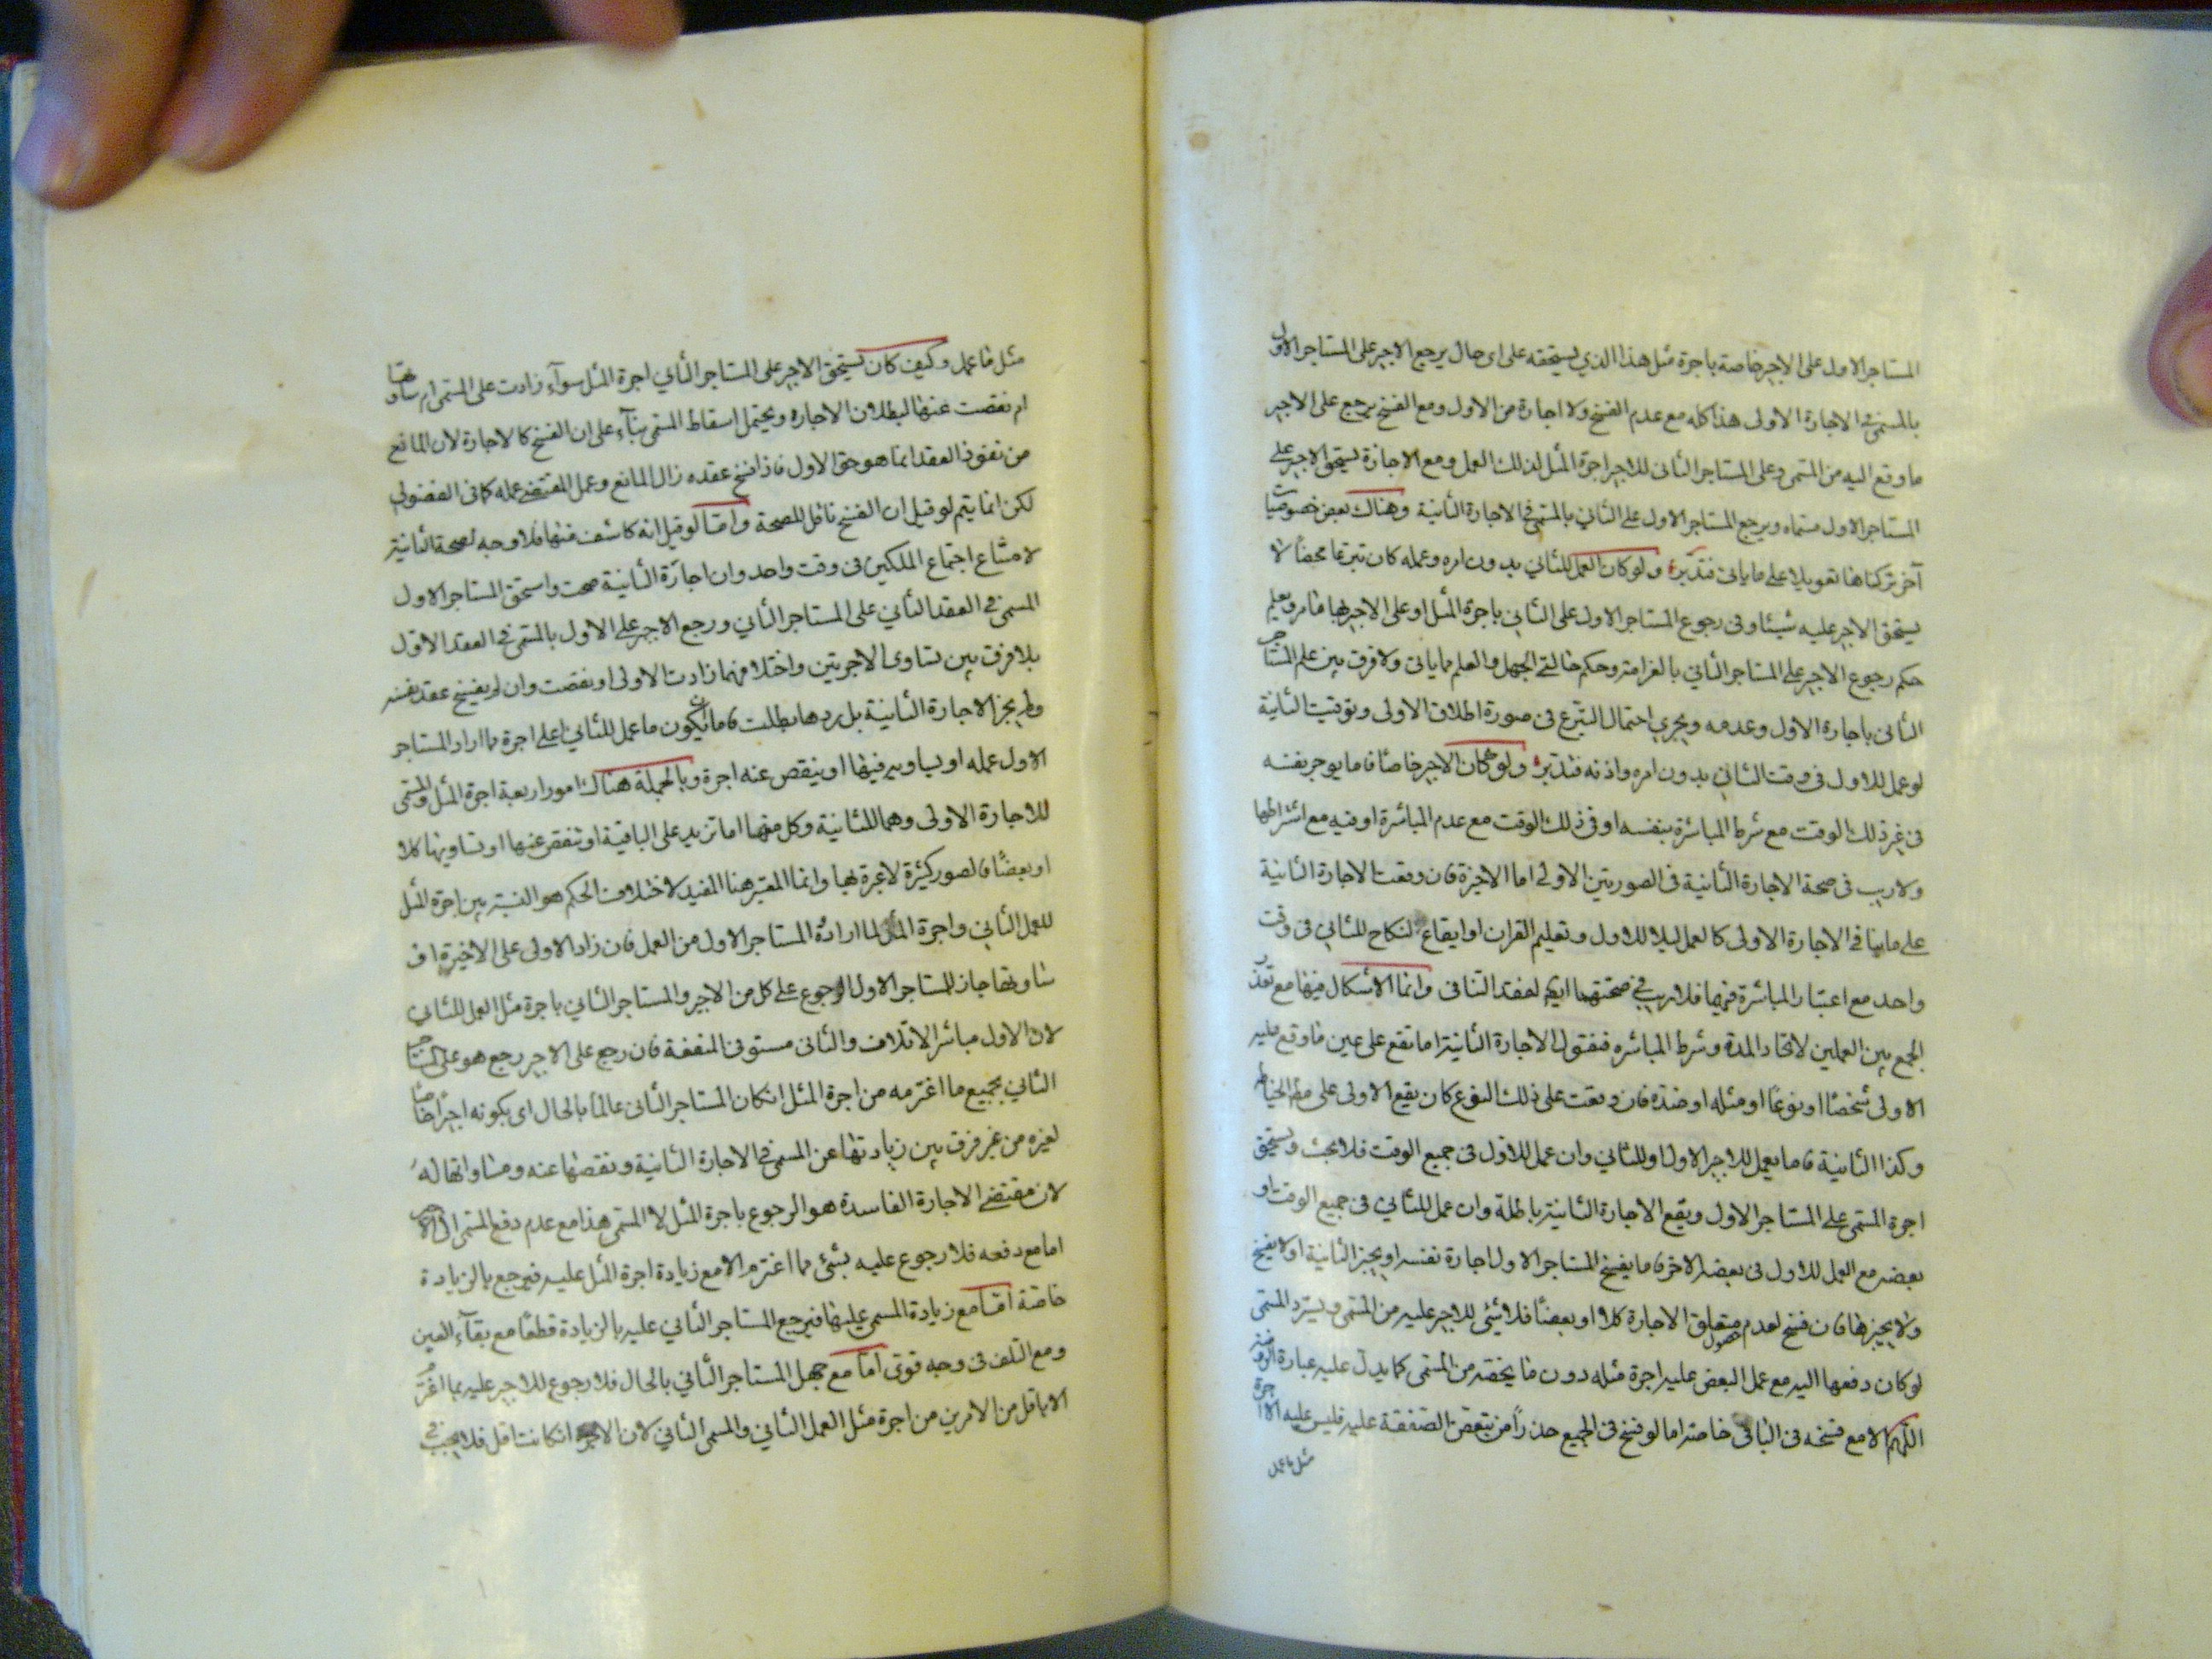 المستاجر الاول على الاجير خاصة باجرة مثل هذا الذي يستحقه على اى حال يرجع الاجير على المستاجر الاول
بالمسمى فى الاجارة الاولى هذا كله مع عدم الفسخ ولا اجازة من الاول ومع الفسخ يرجع على الاجير
ما وقع اليه من المسمى وعلى المستاجر الثانى للاجير اجرة المثل لذلك العمل ومع الاجازة يستحق الاجير على
المستاجر الاول مسماه ويرجع المستاجر الاول على الثاني بالمسمى في الاجارة الثانية وهناك بعض خصوصيات
آخر تركناها تعويلا على ما ياتى فتدبر ولو كان العمل للثاني بدون امره وعمله كان تبرعا محضا لا
يستحق الاجير عليه شيئا وفى رجوع المستاجر الاول على الثانى باجرة المثل او على الاجير بها ما مر ويعلم
حكم رجوع الاجير على المستاجر الثاني بالغرامة وحكم حالتي الجهل والعلم مما ياتى ولا فرق بين علم المستاجر
الثانى باجارة الاول وعدمه ويجرى احتمال التبرع فى صورة اطلاق الاولى وتوقيت الثانية
لو عمل للاول فى وقت الثاني بدون امره واذنه فتدبر ولو كان الاجير خاصا فاما يوجر نفسه
فى غير ذلك الوقت مع شرط المباشرة بنفسه او فى ذلك الوقت مع عدم المباشرة او فيه مع اشتراطها
ولا ريب فى صحة الاجارة الثانية فى الصورتين الاولى اما الاخيرة فان وقعت الاجارة الثانية
على ما ينافى الاجارة الاولى كالعمل ليلا للاول وتعليم القران او ايقاع النكاح للثاني فى وقت
واحد مع اعتبار المباشرة فيهما فلا ريب في صحتهما ايضا لفقد التنافى وانما الاشكال فيها مع تعذر
الجمع بين العملين لاتحاد المدة وشرط المباشره فنقول الاجارة الثانية اما تقع على عين ما وقع عليه
الاولى شخصا او نوعا او مثله او ضده فان وقعت على ذلك النوع كان يقع الاولى على مط الخياطة
وكذا الثانية فاما يعمل للاجير الاول او للثاني وان عمل للاول فى جميع الوقت فلا بحث ويستحق
اجرة المسمى على المستاجر الاول ويقع الاجارة الثانية باطلة وان عمل للثاني فى جميع الوقت او
بعضه مع العمل للاول فى بعضه الاخر فاما يفسخ المستاجر الاول اجارة نفسه او يجيز الثانية او لا يفسخ
ولا يجيزها فان فسخ لعدم حصول متعلق الاجارة كلا او بعضا فلا شئ للاجير عليه من المسمى ويسترد المسمى
لو كان دفعها اليه مع عمل البعض عليه اجرة مثله دون ما يخصه من المسمى كما يدل عليه عبارة الروضة
اللهم الا مع فسخه فى الباقى خاصة اما لو فسخ فى الجميع حذرا من تبعض الصفقة عليه فليس عليه الا اجرة
مثل ما عمل
مثل ما عمل وكيف كان يستحق الاجير على المستاجر الثاني اجرة المثل سوآء زادت على المسمى ام ساوتها
ام نقصت عنها لبطلان الاجارة ويحتمل اسقاط المسمى بنآء على ان الفسخ كالاجازة لان المانع
من نفوذ العقد انما هو حق الاول فاذا فسخ عقده زال المانع وعمل المقتضى عمله كما فى الفضولى
لكن انما يتم لو قيل ان الفسخ ناقل للصحة واما لو قيل انه كاشف عنها فلا وجه لصحة الثانية
لامتناع اجتماع الملكين فى وقت واحد وان اجاز الثانية صحت واستحق المستاجر الاول
المسمى فى العقد الثاني على المستاجر الثاني ورجع الاجير على الاول بالمسمى فى العقد الاول
بلا فرق بين تساوى الاجرتين واختلافهما زادت الاولى او نقصت وان لم يفسخ عقد نفسه
ولم يجز الاجارة الثانية بل ردها بطلت فاما ان يكون ما عمل للثاني اعلى اجرة مما اراد المستاجر
الاول عمله او يساويه فيها او ينقص عنه اجرة وبالجملة هناك امور اربعة اجرة المثل والمسمى
للاجارة الاولى وهما للثانية وكل منها اما تزيد على الباقية او تنقص عنها او تساويها كلا
او بعضا فالصور كثيرة لا عبرة بها وانما المعتبر هنا المفيد لاختلاف الحكم هو النسبة بين اجرة المثل
للعمل الثاني واجرة المثل لما اراده المستاجر الاول من العمل فان زاد الاولى على الاخيرة او
ساوتها جاز للمستاجر الاول الرجوع على كل من الاجير والمستاجر الثاني باجرة مثل العمل للثاني
لان الاول مباشر الاتلاف والثانى مستوفى المنفعة فان رجع على الاجير رجع هو على المستاجر
الثاني بجميع ما اغترمه من اجرة المثل انكان المستاجر الثانى عالما بالحال اى بكونه اجيرا خاصا
لغيره من غير فرق بين زيادتها عن المسمى فى الاجارة الثانية ونقصها عنه ومساواتها له
لان مقتضى الاجارة الفاسدة هو الرجوع باجرة المثل لا المسمى هذا مع عدم دفع المسمى الى الاجير
اما مع دفعه فلا رجوع عليه بشئ مما اغترم الا مع زيادة اجرة المثل عليه فيرجع بالزيادة
خاصة اما مع زيادة المسمى عليها فيرجع المستاجر الثاني عليه بالزيادة قطعا مع بقآء العين
ومع التلف فى وجه قوى اما مع جهل المستاجر الثاني بالحال فلا رجوع للاجير عليه بما اغترم
الا باقل من الامرين من اجرة مثل العمل الثاني والمسمى الثاني لان الاجرة انكانت اقل فلا يجب فى